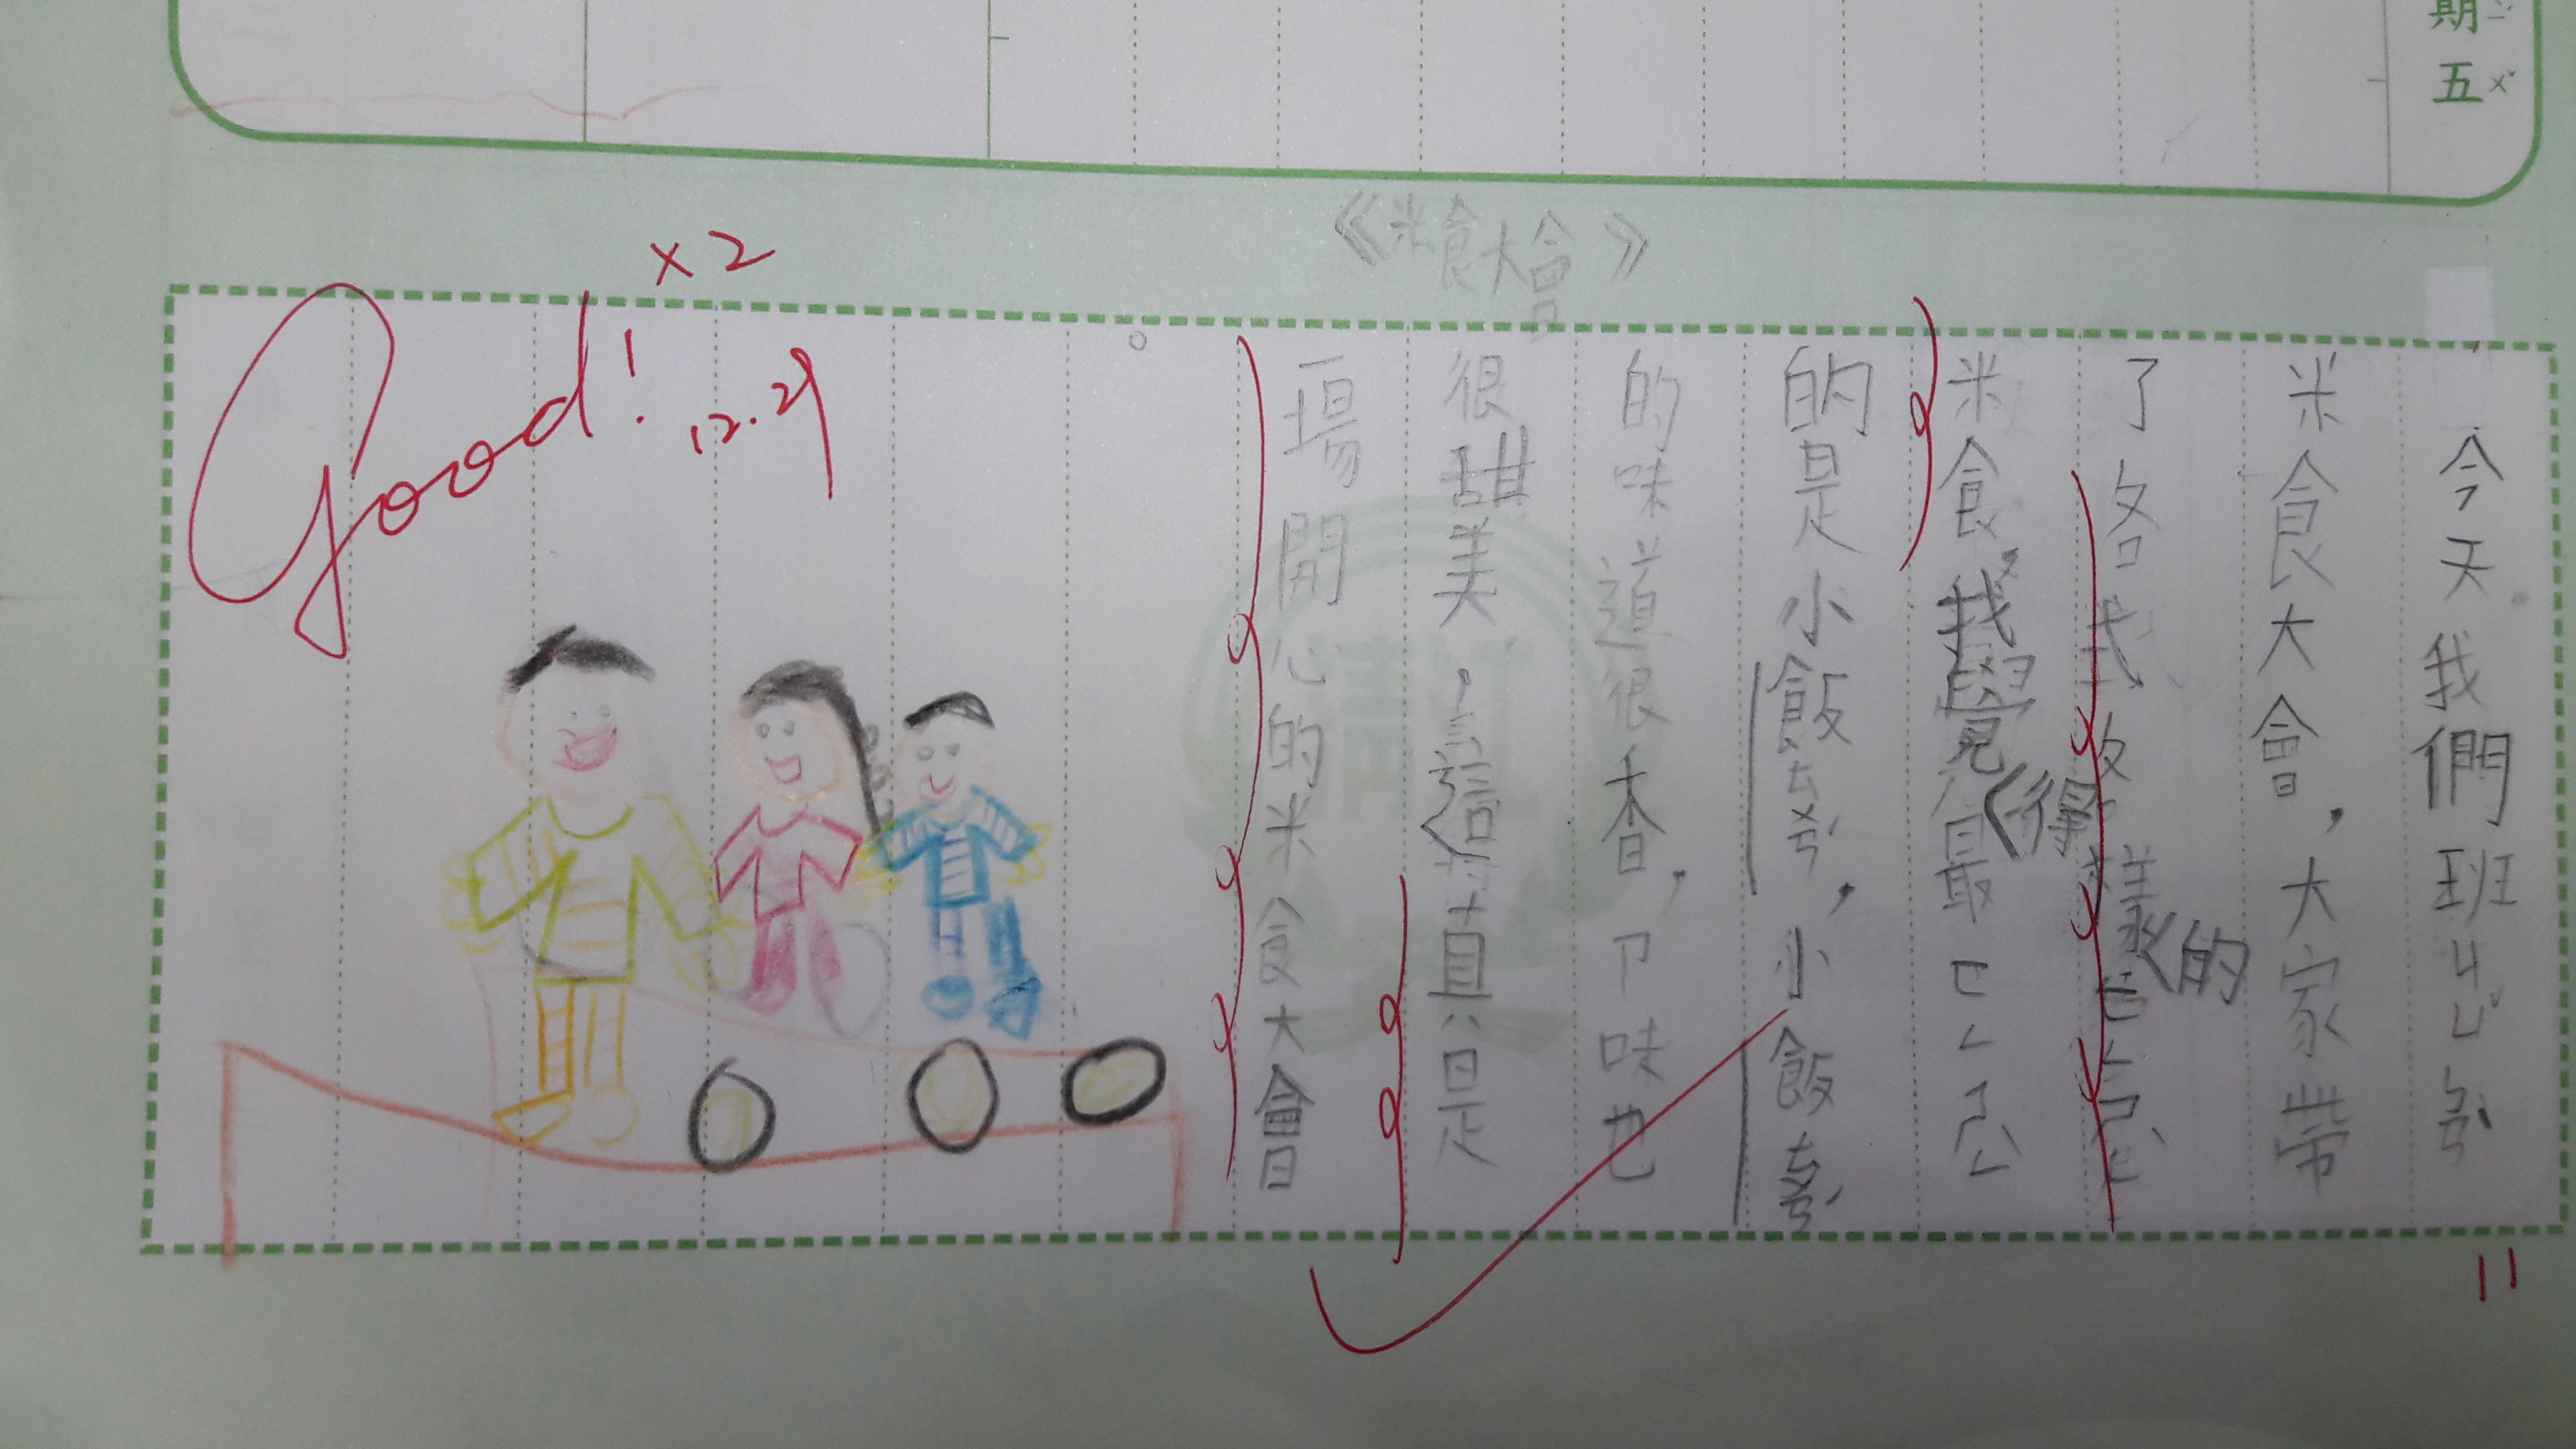 期
五ㄨˇ
《米食大會》
今天我們班ㄐㄩˇㄅㄢˋ
米食大會，大家帶
了各式各樣的
米食，我覺得最
的是小飯ㄊㄨㄢˊ，小飯ㄊㄨㄢˊ
的味道很香，ㄗ味也
很甜美，這真是
一場開心的米食大會
。
Good!
×2
12.29